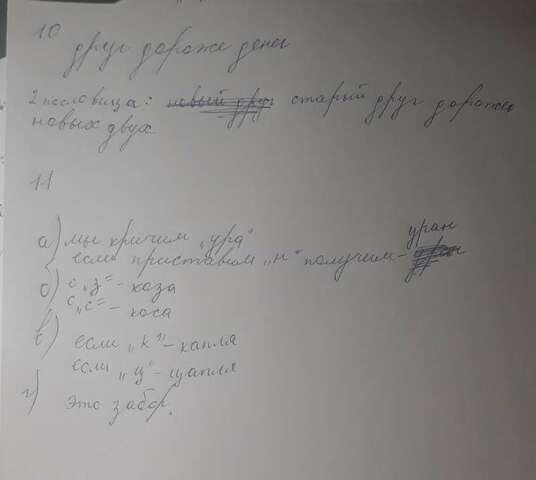 10
друг дороже дене
2 пословица: новый друг старый друг дороже
новых двух.
11
а) мы кричим „ура"
если приставим „н" получим - уран
б) с „з" - коза
с „с" - коса
в) если „к" - капля
если „ц" - цапля
г) это забор.